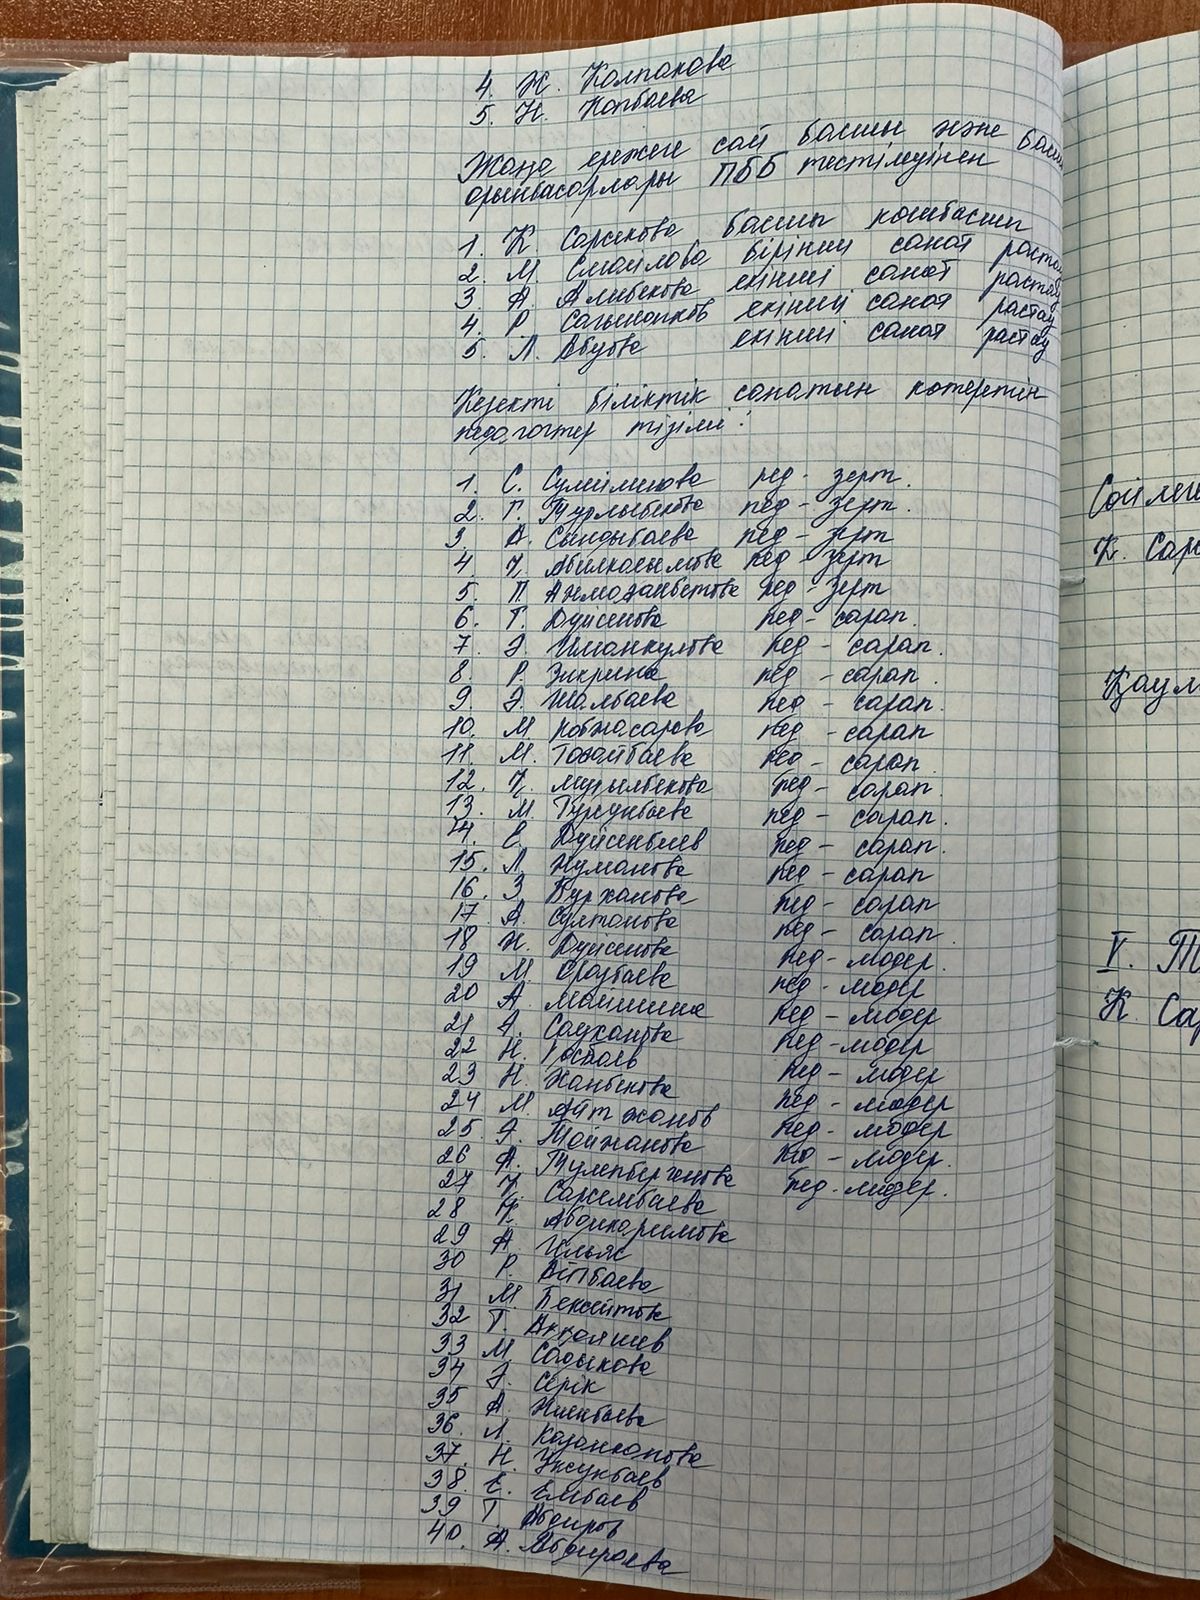 4. Ж. Колпакова
5. Н. Копбаева
Жаңа ережеге сай басшы және басш
орынбасарлары ПББ тестілеуінен
1. К. Сарсекова басшы көшбасшы
2. М. Смаилова бірінші санат растау
3. А. Алибекова екінші санат растау
4. Р. Сагындыков екінші санат растау
5. Л. Абуова екінші санат растау
Кезекті біліктік санатын көтеретін
педагогтер тізімі:
1. С. Сулейменова пед - зерт.
2. Г. Турлыбекова пед - зерт.
3. А. Сындыбаева пед - зерт
4 Қ. Абилкасымова пед - зерт
5. П. Ажмағанбетова пед - зерт
6. Г. Дуйсенова пед - сарап.
7. Э. Иманкулова пед - сарап.
8. Р. Зикрина пед - сарап.
9 Э. Жалбаева пед - сарап.
10. М. Кобжасарова пед - сарап
11. М. Тоғайбаева пед - сарап
12. Қ. Мурылбекова пед - сарап.
13. М. Турсунбаева пед - сарап.
14. Е. Дуйсенбиев пед - сарап.
15. Л. Нуманова пед - сарап
16. З Бурханова пед - сарап
17. А. Султанова пед - сарап.
18 Ж. Дуйсенова пед - модер.
19 М. Оразбаева пед - модер
20 А. Маймина пед - модер
21 А. Сауханова пед - модер
22 Н. пед - модер
23 Н. Жанбекова пед - модер
24 М Айтжанов пед - модер
25. Э. Мойжанова пед - модер.
26 А. Туленбергенова пед - модер.
27 Қ. Сарсембаева
28 Қ. Абдикаримова
29 А. Ильяс
30 Р. Әтібаева
31 М. Бексейтова
32 Г. Аккошиев
33 М Садыкова
34 Э. Серік
35 А. Жиенбаева
36. Л.
37. Н.
38. Е. Ембаев
39 Т. Абдиров
40. А. Абдираева
Сөйлеге
К. Сар
Қаул
V. Т
К. Сар